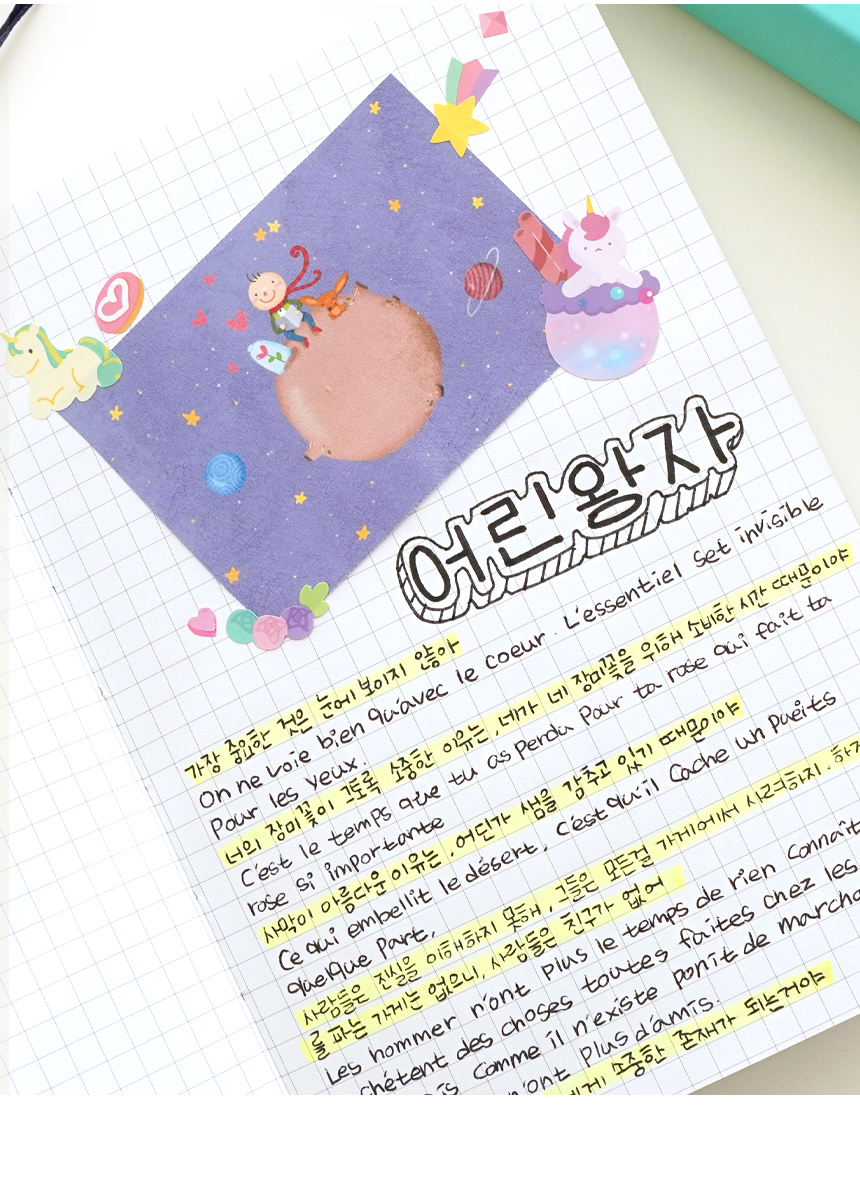 어린왕자
가장 중요한 것은 눈에 보이지 않아
On ne voie bien qu'avec le coeur. L'essentiel set invisible
Pour les yeux.
너의 장미꽃이 그토록 소중한 이유는, 네가 네 장미꽃을 위해 소비한 시간 때문이야
C'est le temps que tu as perdu Pour ta rose qui fait ta
rose si importante
사막이 아름다운 이유는, 어딘가 샘을 감추고 있기 때문이야
Ce qui embellit le désert, c'est qu'il cache un pueits
quelque part,
사람들은 진실을 이해하지 못해, 그들은 모든걸 가게에서 사려하지. 하지
를 파는 가게는 없으니, 사람들은 친구가 없어
Les hommer n'ont plus le temps de rien connaît
chétent des choses toutes faites chez les
is Comme il n'existe ponit de marcha
n'ont plus d'amis.
에게 소중한 존재가 되는거야